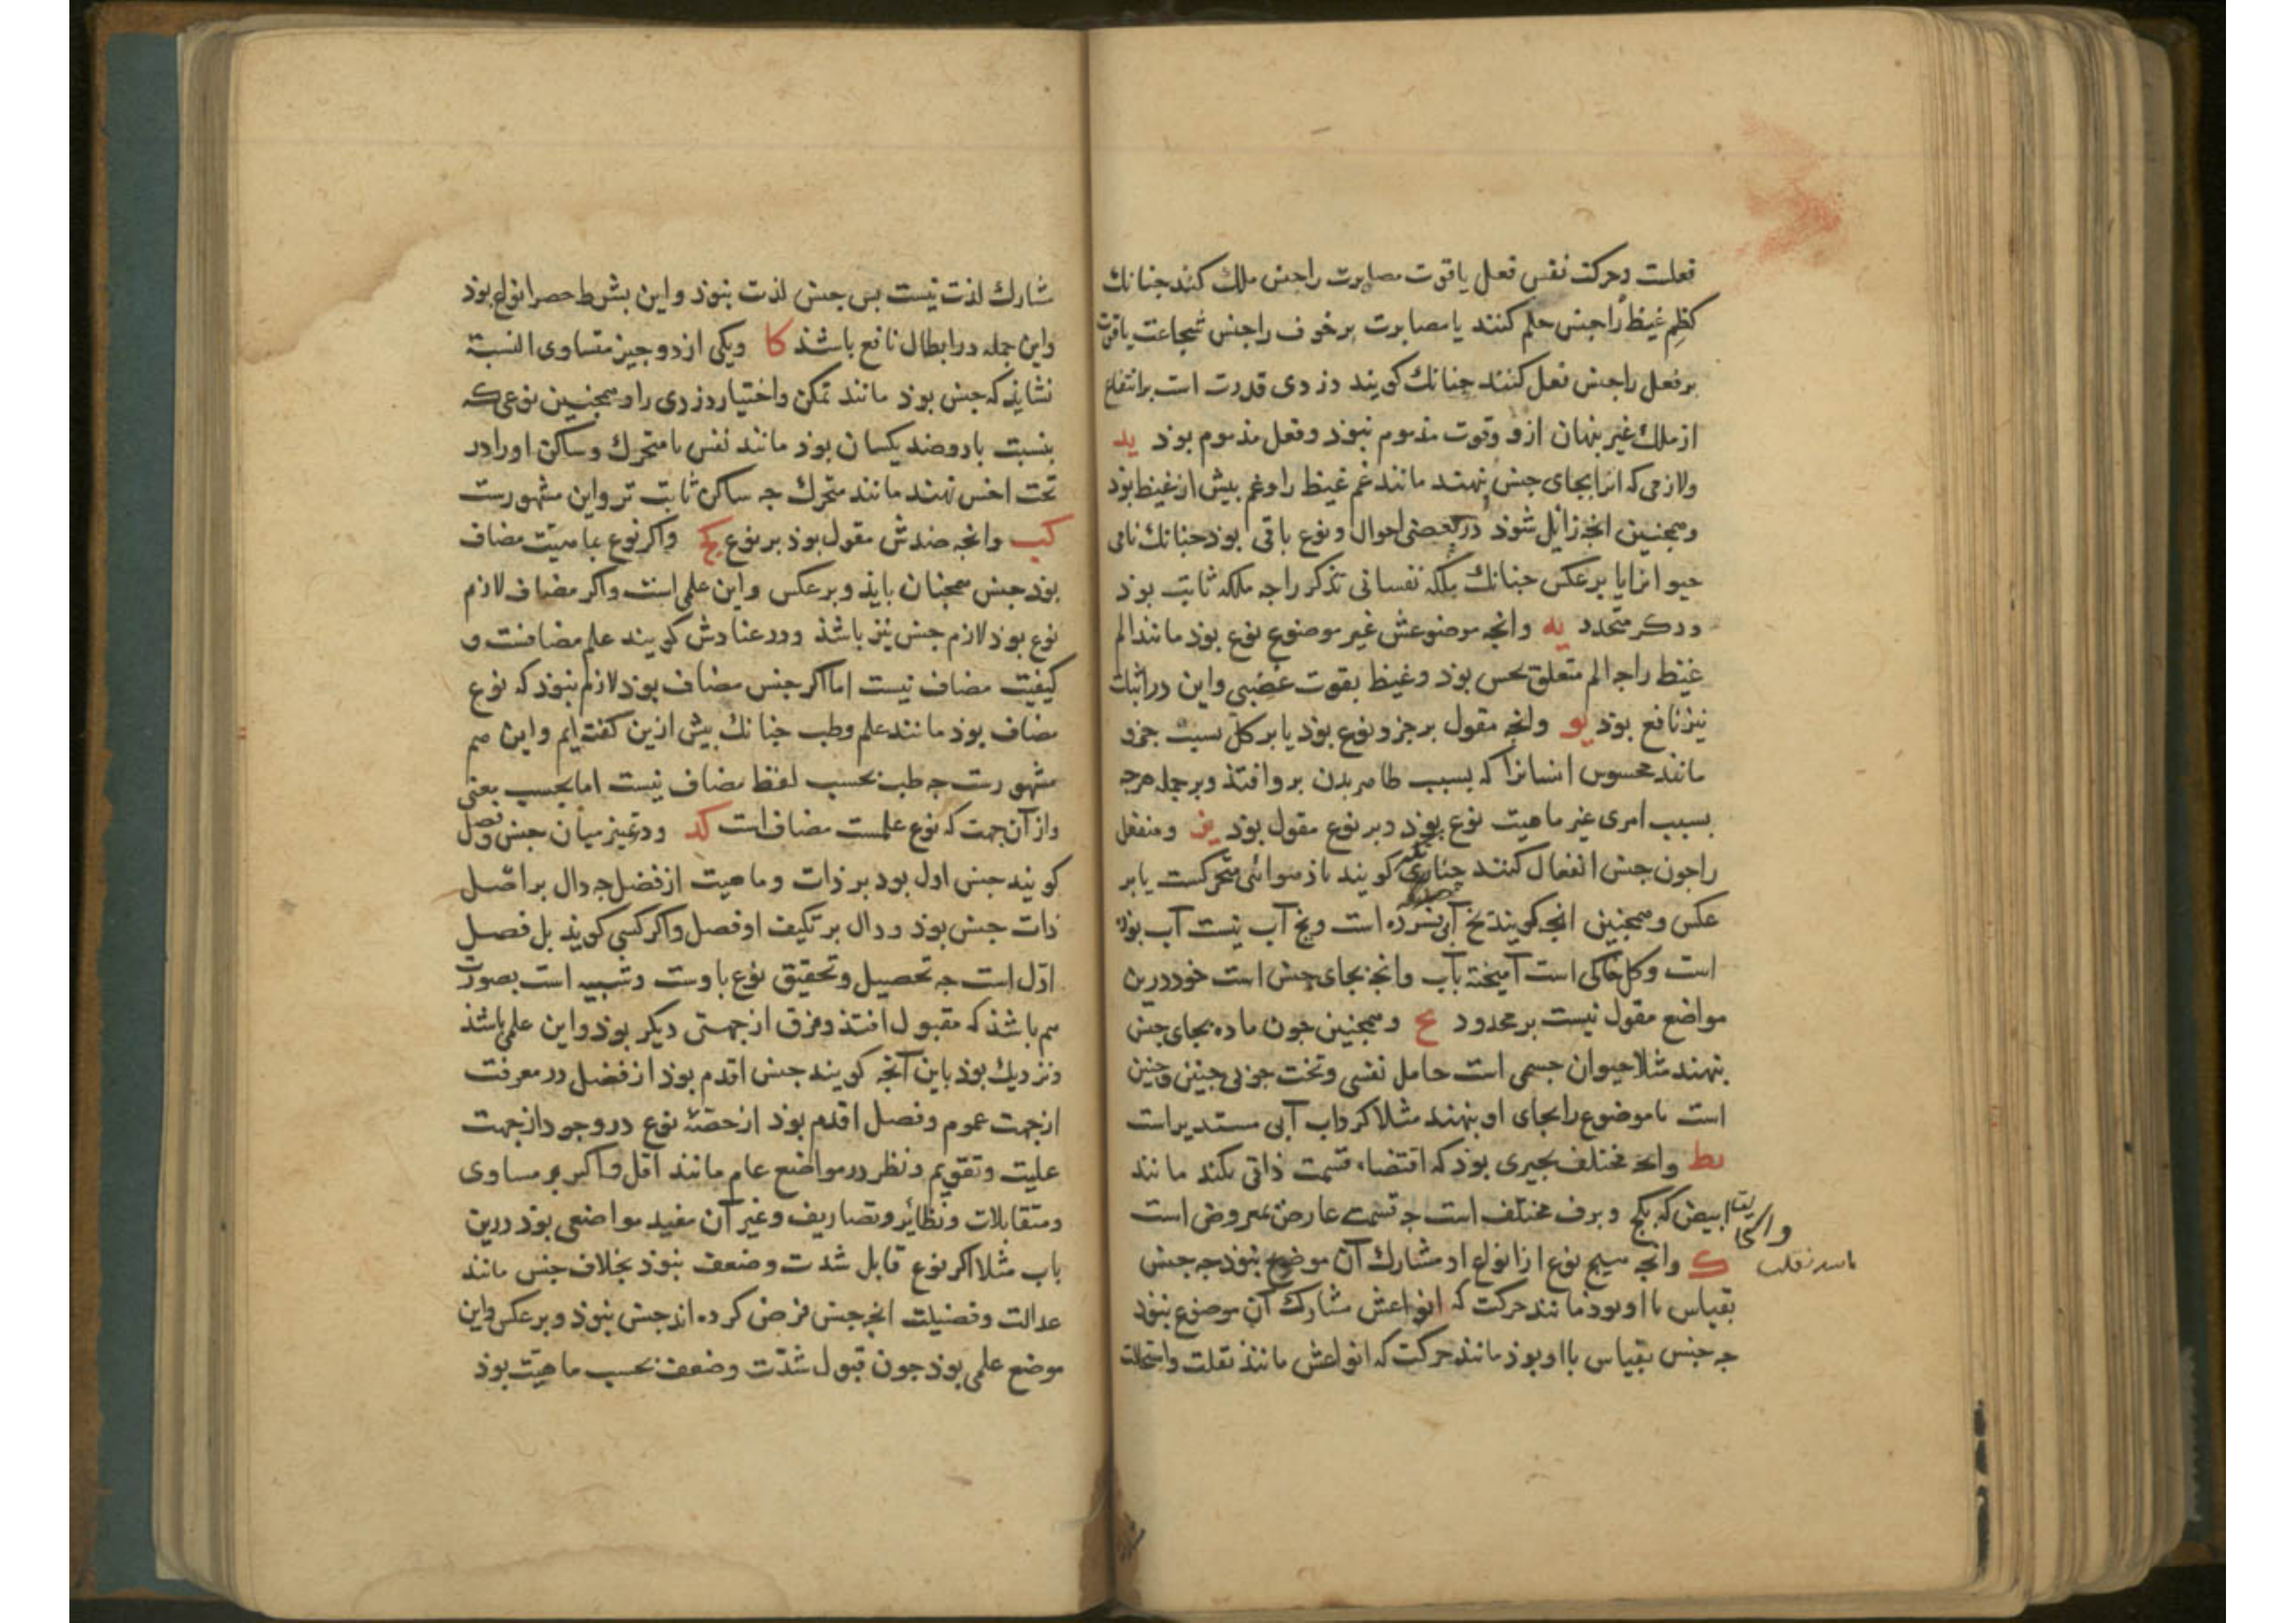 فعلست وحرکت نفس فعل یا قوت مصابرت را جنس ملک کند جنانک
کظم غیظ را جنس حلم کنند یا مصابرت بر خوف را جنس شجاعت یا قوت
بر فعل را جنس فعل کنند جنانک کویند دزدی قدرت است بر انتفاع
از ملک غیر بنهان ازو و قوت مذموم نبوذ و فعل مذموم بوذ ید
ولازمی که انرا بجای جنس نهند مانند غم غیظ را و غم بیش از غیظ بوذ
وهمجنین انجه زائل شوذ در بعضی احوال و نوع باقی بوذ جنانک نامی
حیوانرا یا برعکس جنانک ملکه نفسانی تذکر را جه ملکه ثابت بوذ
وذکر متجدد یه وانجه موضوعش غیر موضوع نوع بوذ مانند الم
غیظ را جه الم متعلق بحس بوذ وغیظ بقوت غضبی واین در اثبات
نیز نافع بوذ یو وانجه مقول بر جزو نوع بوذ یا بر کل بسبب جزو
مانند محسوس انسانرا که بسبب ظاهر بدن برو افتذ وبر جمله هرجه
بسبب امری غیر ماهیت نوع بوذ و بر نوع مقول بوذ یز ومنفعل
را جون جنس انفعال کنند کویند باذ هوائی متحرکست یا بر
عکس وهمجنین انجه کویند یخ آبی فسرده است ویخ آب نیست آب بوذه
است وکل خاکی است آمیخته بآب وانجه بجای جنس است خود درین
مواضع مقول نیست بر محدود یح وهمجنین جون ماده بجای جنس
بنهند مثلا حیوان جسمی است حامل نفسی وتخت جوبی جنین وجنین
است یا موضوع را بجای او بنهند مثلا کرداب آبی مستدیر است
یط وانجه مختلف بجیزی بوذ که اقتضاء قسمت ذاتی نکند مانند
ابیض که بکج و برف مختلف است جه قسمت عارض بمعروض است
ک وانجه هیج نوع از انواع او مشارک آن موضوع نبوذ جه جنس
بقیاس با او بوذ مانند حرکت که انواعش مشارک آن موضوع نبوذ
جه جنس بقیاس با او بوذ مانند حرکت که انواعش مانند نقلت واستحالت
مشارک لذت نیست بس جنس لذت نبوذ واین بشرط حصر انواع بوذ
واین جمله در ابطال نافع باشذ کا ویکی از دو جیز متساوی النسبة
نشایذ که جنس بوذ مانند تمکن واختیار دزدی را وهمجنین نوعی که
بنسبت با دو ضد یکسان بوذ مانند نفس با متحرک وساکن او را در
تحت اخس نهند مانند متحرک جه ساکن ثابت تر واین مشهورست
کب وانجه ضدش مقول بوذ بر نوع کج واکر نوع بماهیت مضاف
بوذ جنس همجنان بایذ وبرعکس واین علمی است واکر مضاف لازم
نوع بوذ لازم جنس نیز باشذ ودر عنادش کویند علم مضافست و
کیفیت مضاف نیست اما اکر جنس مضاف بوذ لازم نبوذ که نوع
مضاف بوذ مانند علم وطب جنانک بیش ازین کفته ایم واین هم
مشهورست جه طب بحسب لفظ مضاف نیست اما بحسب معنی
واز آن جهت که نوع علمست مضاف است کد ودر تمییز میان جنس وفصل
کویند جنس اول بود بر ذات وماهیت از فصل جه دال بر اصل
ذات جنس بوذ ودال بر تکیف او فصل واکر کسی کویذ بل فصل
اول است جه تحصیل وتحقیق نوع باوست وشبیه است بصورت
هم باشذ که مقبول افتذ وفرق از جهتی دیکر بوذ واین علمی باشذ
ونزدیک بوذ باین آنجه کویند جنس اقدم بوذ از فصل در معرفت
از جهت عموم وفصل اقدم بوذ از حصهٔ نوع در وجود از جهت
علیت وتقویم ونظر در مواضع عام مانند اقل واکثر ومساوی
ومتقابلات ونظائر وتصاریف وغیر آن مفید مواضعی بوذ درین
باب مثلا اکر نوع قابل شدت وضعف نبوذ بخلاف جنس مانند
عدالت وفضیلت انجه جنس فرض کرده اند جنس نبوذ وبرعکس واین
موضع علمی بوذ جون قبول شدّت وضعف بحسب ماهیّت بوذ